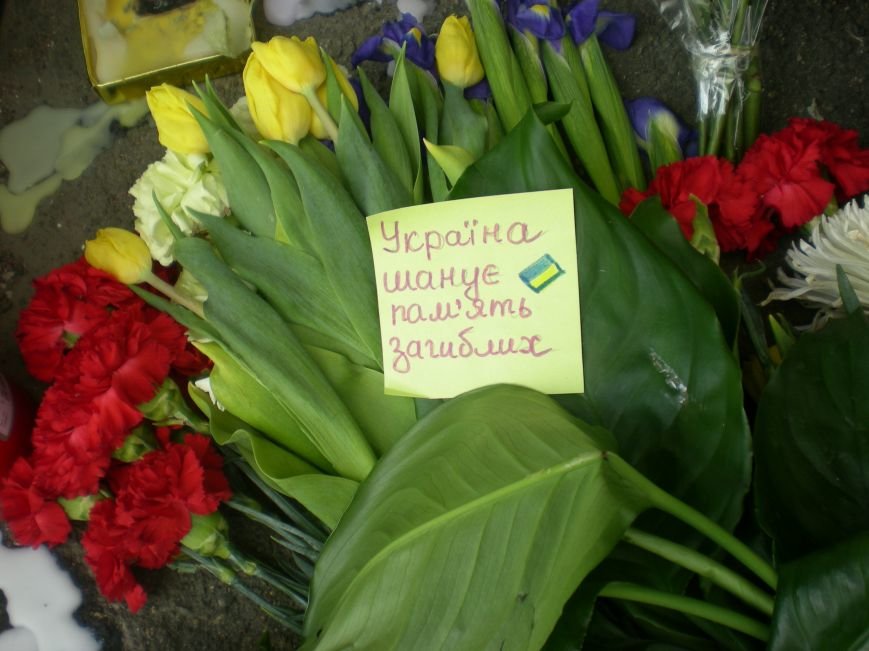 Україна
шанує
пам'ять
загиблих